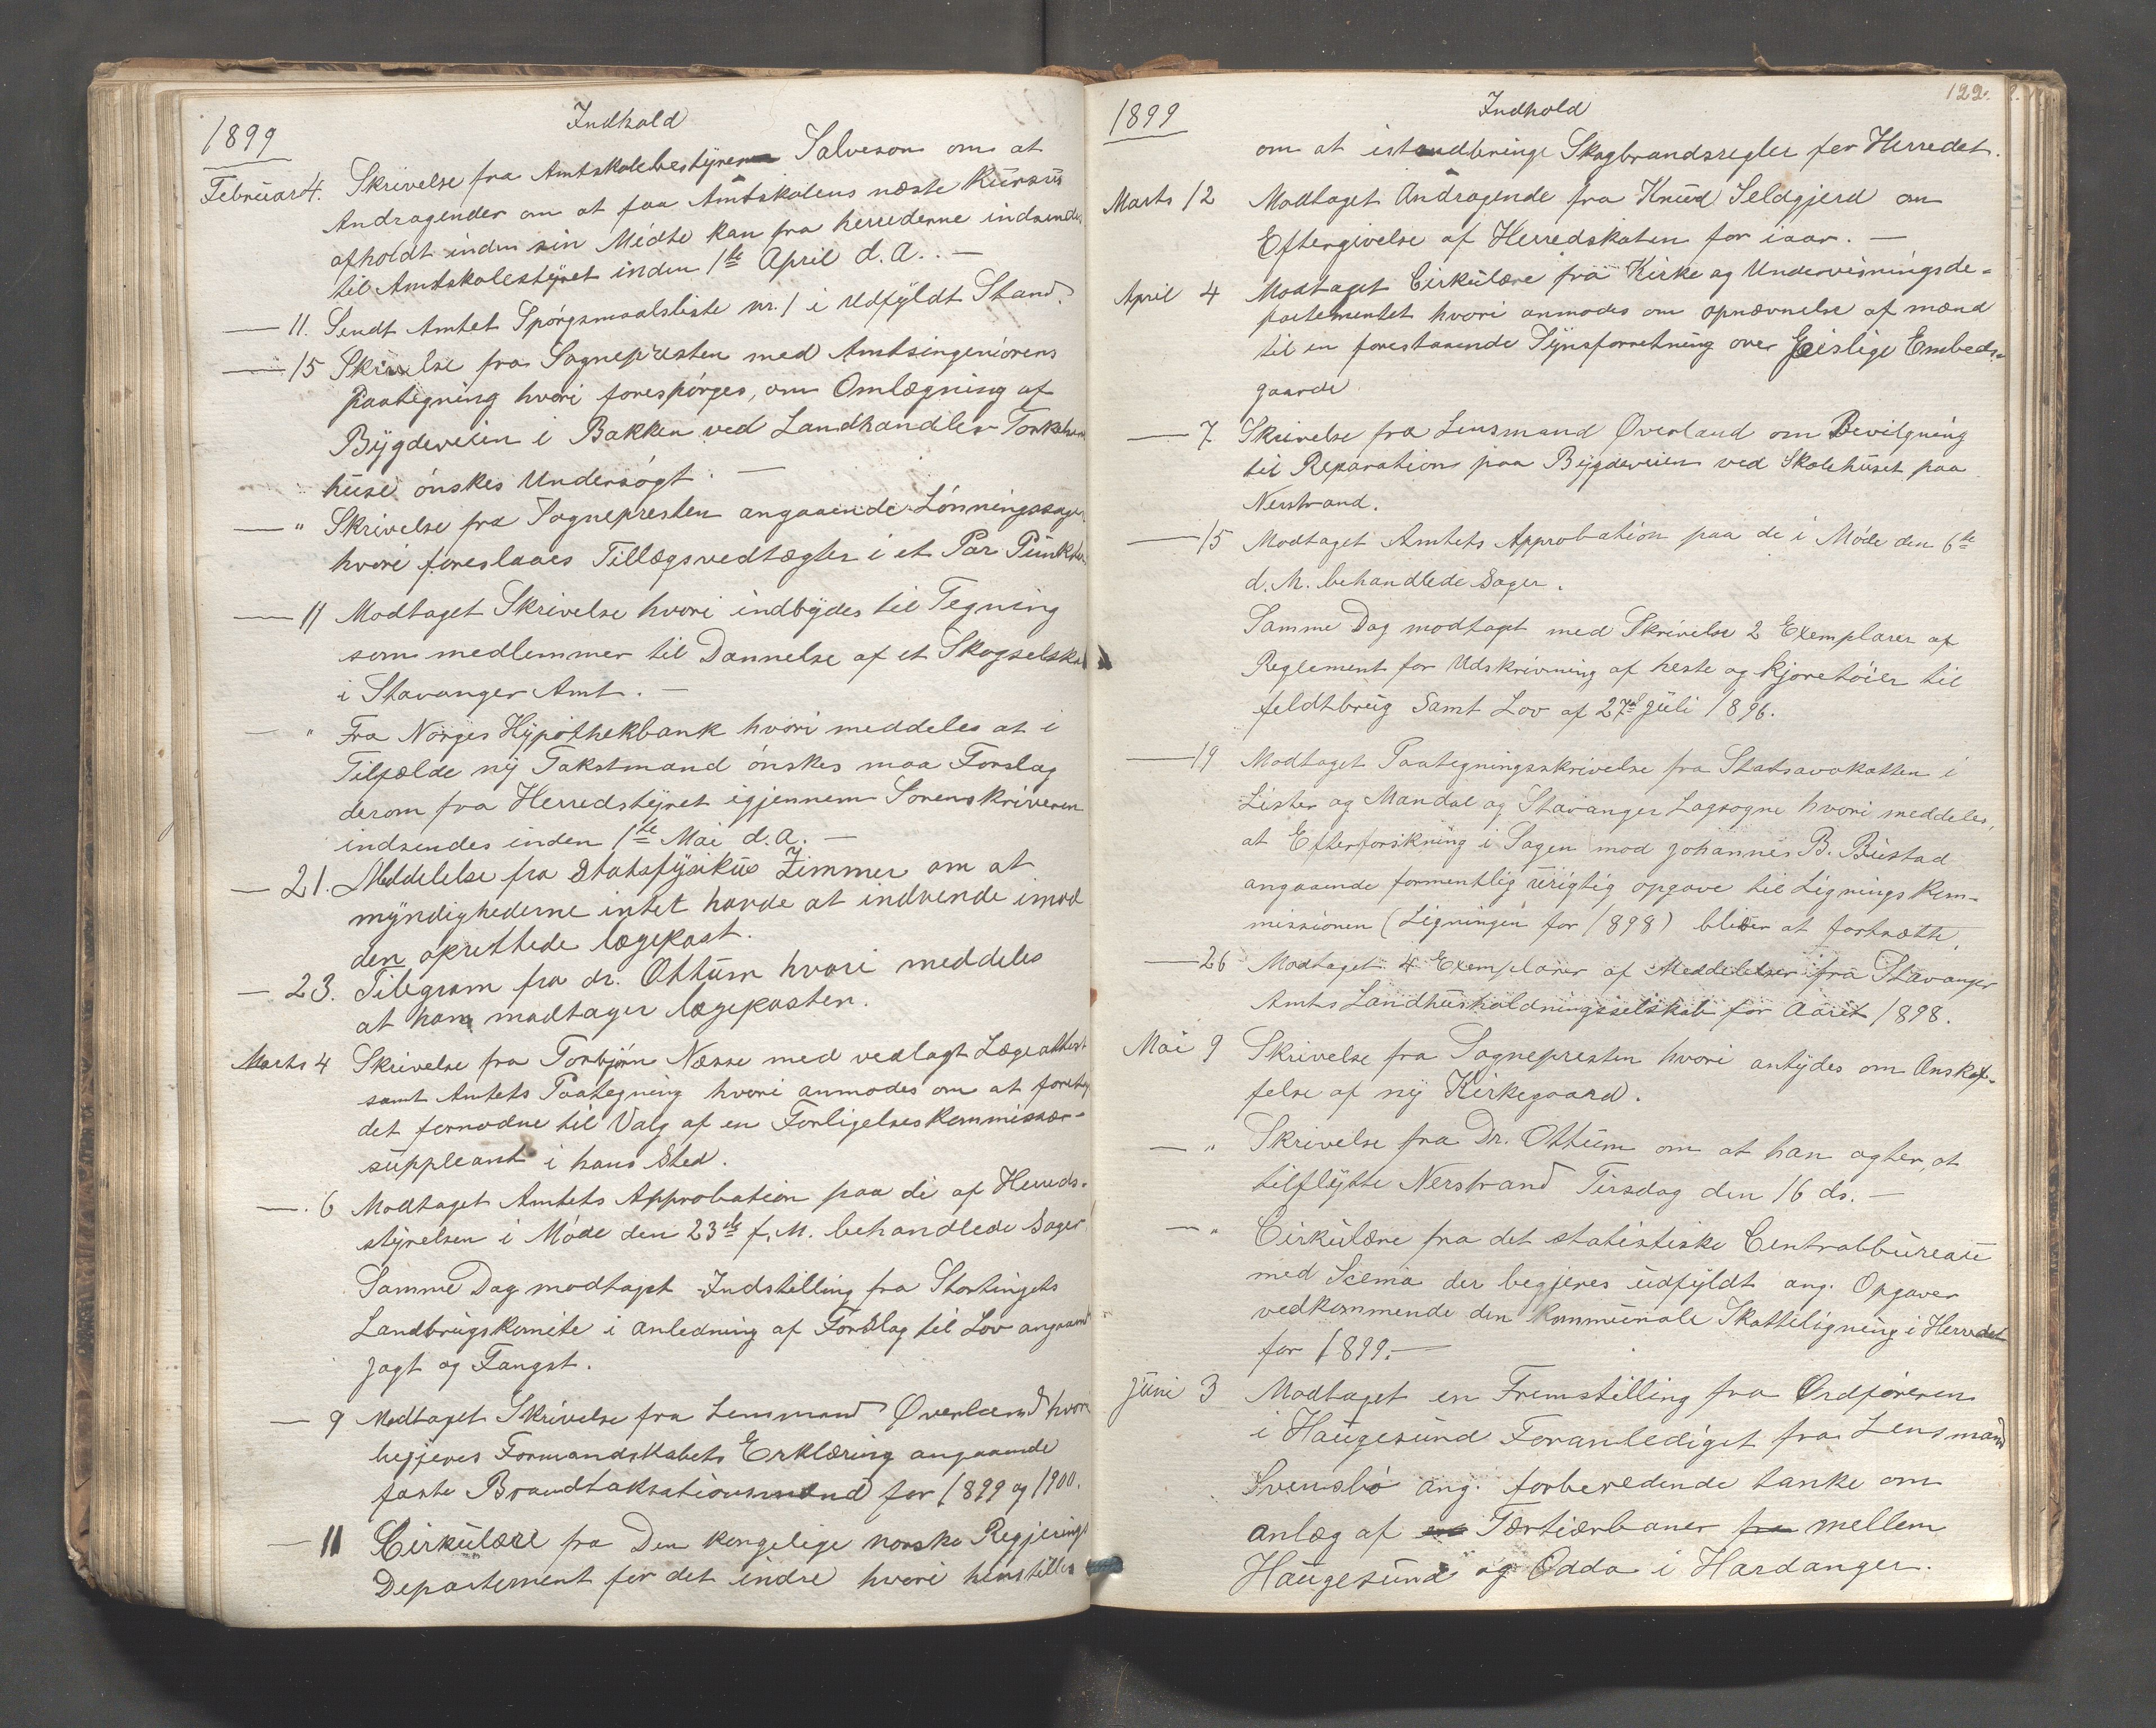 1899 Indhold
Februar 4. Skrivelse fra Amtskolebestyreren Salveson om at
Andragender om at faa Amtskolens næste Kursus
afholdt inden sin Midte kan fra herrederne indsendes
til Amtskolestyret inden 1ste April d. A. . —
— 11. Sendt Amtet Spórgsmaalsliste nr. 1 i Udfyldt Stand.
— 15 Skrivelse fra Sognepresten med Amtsingeniorens
Paategning hvori forespórges, om Omlægning af
Bygdeveien i Bakken ved Landhandler
huse ónskes Undersógt. —
— " Skrivelse fra Sognepresten angaaende Lónningssager,
hvori foreslaaes Tillægsvedtægter i et Par Punkter
— 11 Modtaget Skrivelse hvori indbydes til Tegning
som medlemmer til Dannelse af et Skogselskab
i Stavanger Amt. —
— " Fra Norges Hypothekbank hvori meddeles at i
Tilfælde ny Takstmand ónskes maa Forslag
derom fra Herredstyret igjennem Sorenskriveren
indsendes inden 1ste Mai d. A. —
— 21. Meddelelse fra Statsfysikus Zimmer om at
myndighederne intet havde at indvende imod
den oprettede lægepost.
— 23. Telegram fra dr. Ottum hvori meddeles
at han modtager lægeposten.
Marts 4 Skrivelse fra Torbjórn Næsse med vedlagt Lægeattest
samt Amtets Paategning hvori anmodes om at foretage
det fornodne til Valg af en Forligelseskommissær-
suppleant i hans Sted.
— 6 Modtaget Amtets Approbation paa de af Herreds-
styrelsen i Móde den 23de f. M. behandlede Sager
Samme Dag modtaget Indstilling fra Stortingets
Landbrugskomite i anledning af Forslag til Lov angaaende
Jagt og Fangst.
— 9 Modtaget Skrivelse fra Lensmand Øverland hvori
begjeres Formandskabets Erklæring angaaende
faste Brandtaksationsmænd for 1899 og 1900.
— 11 Cirkulære fra Den kongelige norske Regjerings
Departement for det indre hvori henstilles
122.
1899 Indhold
om at istandbringe Skogbrandsregler for Herredet.
Marts 12 Modtaget Andragende fra Knud Seldgjerd om
Eftergivelse af Herredskaten for iaar. —
April 4 Modtaget Cirkulære fra Kirke og Undervisningsde-
partementet hvori anmodes om opnævnelse af mænd
til en forestaaende Synsforretning over Geislige Embeds-
gaarde
— 7 Skrivelse fra Lensmand Øverland om Bevilgning
til Reparation paa Bygdeveien ved Skolehuset paa
Nerstrand.
— 15 Modtaget Amtets Approbation paa de i Móde den 6te
d. M. behandlede Sager.
Samme Dag modtaget med Skrivelse 2 Exemplarer af
Reglement for Udskrivning af heste og kjoretóier til
feldtbrug Samt Lov af 27de Juli 1896.
— 19 Modtaget Paategningsskrivelse fra Statsavokatten i
Lister og Mandal og Stavanger Lagsogne hvori meddeles,
at Efterforskning i Sagen mod Johannes B. Bustad
angaaende formentlig urigtig opgave til Lignings Kom-
missionen (Ligningen for 1898) bliver at fortsætte.
— 26 Modtaget 4 Exemplarer af Meddelelser fra Stavanger
Amts Landhusholdningsselskab for Aaret 1898.
Mai 9 Skrivelse fra Sognepresten hvori antydes om Anskaf-
felse af ny Kirkegaard.
— " Skrivelse fra Dr. Ottum om at han agter, at
tilflytte Nerstrand Tirsdag den 16 ds. —
— " Cirkulære fra det statistiske Centralbureau
med Scema der begjeres udfyldt ang. Opgaver
vedkommende den kommunale Skatteligning i Herredet
for 1899. —
Juni 3 Modtaget en Fremstilling fra Ordføreren
i Haugesund Foranlediget fra Lensmand
Svensbó ang. forberedende tanke om
anlæg af en Tærtiærbaner fra mellem
Haugesund og Odda i Hardanger.